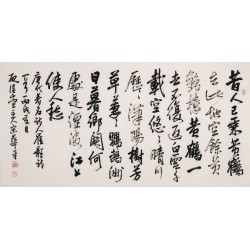 昔人已乘黄鶴
去此地空餘黄
鶴樓黄鶴一
去不復返白雲千
載空悠悠晴川
歷歷漢陽樹芳
草萋萋鸚鵡洲
日暮鄉關何
處是煙波江上
使人愁
唐代著名詩人崔顥詩